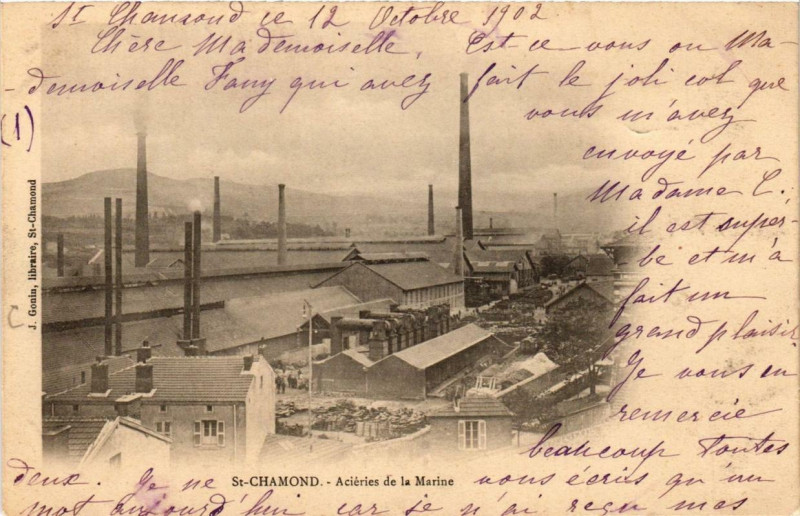 St Chamond ce 12 Octobre 1902
Chère Mademoiselle, Est-ce vous ou Ma-
-demoiselle Fany qui avez fait le joli col que
vous m'avez
envoyé par
Madame C.
il est super-
be et m'a
fait un
grand plaisir
Je vous en
remercie
beaucoup toutes
deux. Je ne vous écris qu'un
mot aujourd'hui car je n'ai reçu mes
(1)
J. Gonin, libraire, St-Chamond
St-CHAMOND. - Aciéries de la Marine